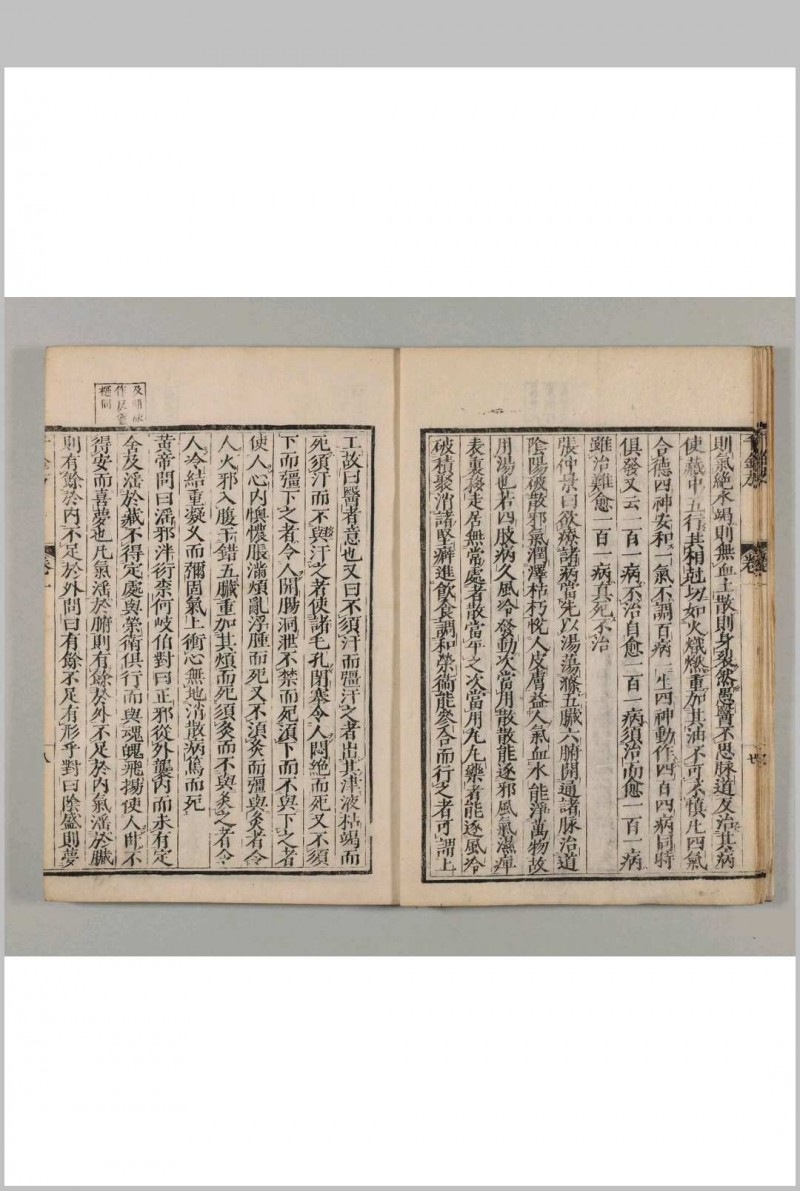 則氣絕水竭則無血土散則身裂然愚醫不思脉道反治其病
使藏中五行共相尅切如火熾燃重加其油不可不慎凡四氣
合德四神安和一氣不調百病一生四神動作四百四病同時
俱發又云一百一病不治自愈一百一病須治而愈一百一病
雖治難愈一百一病真死不治
張仲景曰欲療諸病當先以湯蕩滌五臟六腑開通諸脉治道
陰陽破散邪氣潤澤枯朽悅人皮膚益人氣血水能淨萬物故
用湯也若四肢病久風冷發動次當用散散能逐邪風氣濕痺
表裏移走居無常處者散當平之次當用丸丸藥者能逐風冷
破積聚消諸堅癖進飲食調和榮衛能參合而行之者可謂上
工故曰醫者意也又曰不須汗而彊汗之者出其津液枯竭而
死須汗而不與汗之者使諸毛孔閉塞令人悶絕而死又不須
下而彊下之者令人開腸洞泄不禁而死須下而不與下之者
使人心內懊憹脹滿煩亂浮腫而死又不須灸而彊與灸者令
人火邪入腹干錯五臟重加其煩而死須灸而不與灸之者令
人冷結重凝久而彌固氣上衝心無地消散病篤而死
黃帝問曰淫邪泮衍柰何岐伯對曰正邪從外襲內而未有定
舍及淫於藏不得定處與榮衛俱行而與魂魄飛揚使人臥不
得安而喜夢也凡氣淫於腑則有餘於外不足於內氣淫於臟
則有餘於內不足於外問曰有餘不足有形乎對曰陰盛則夢
八